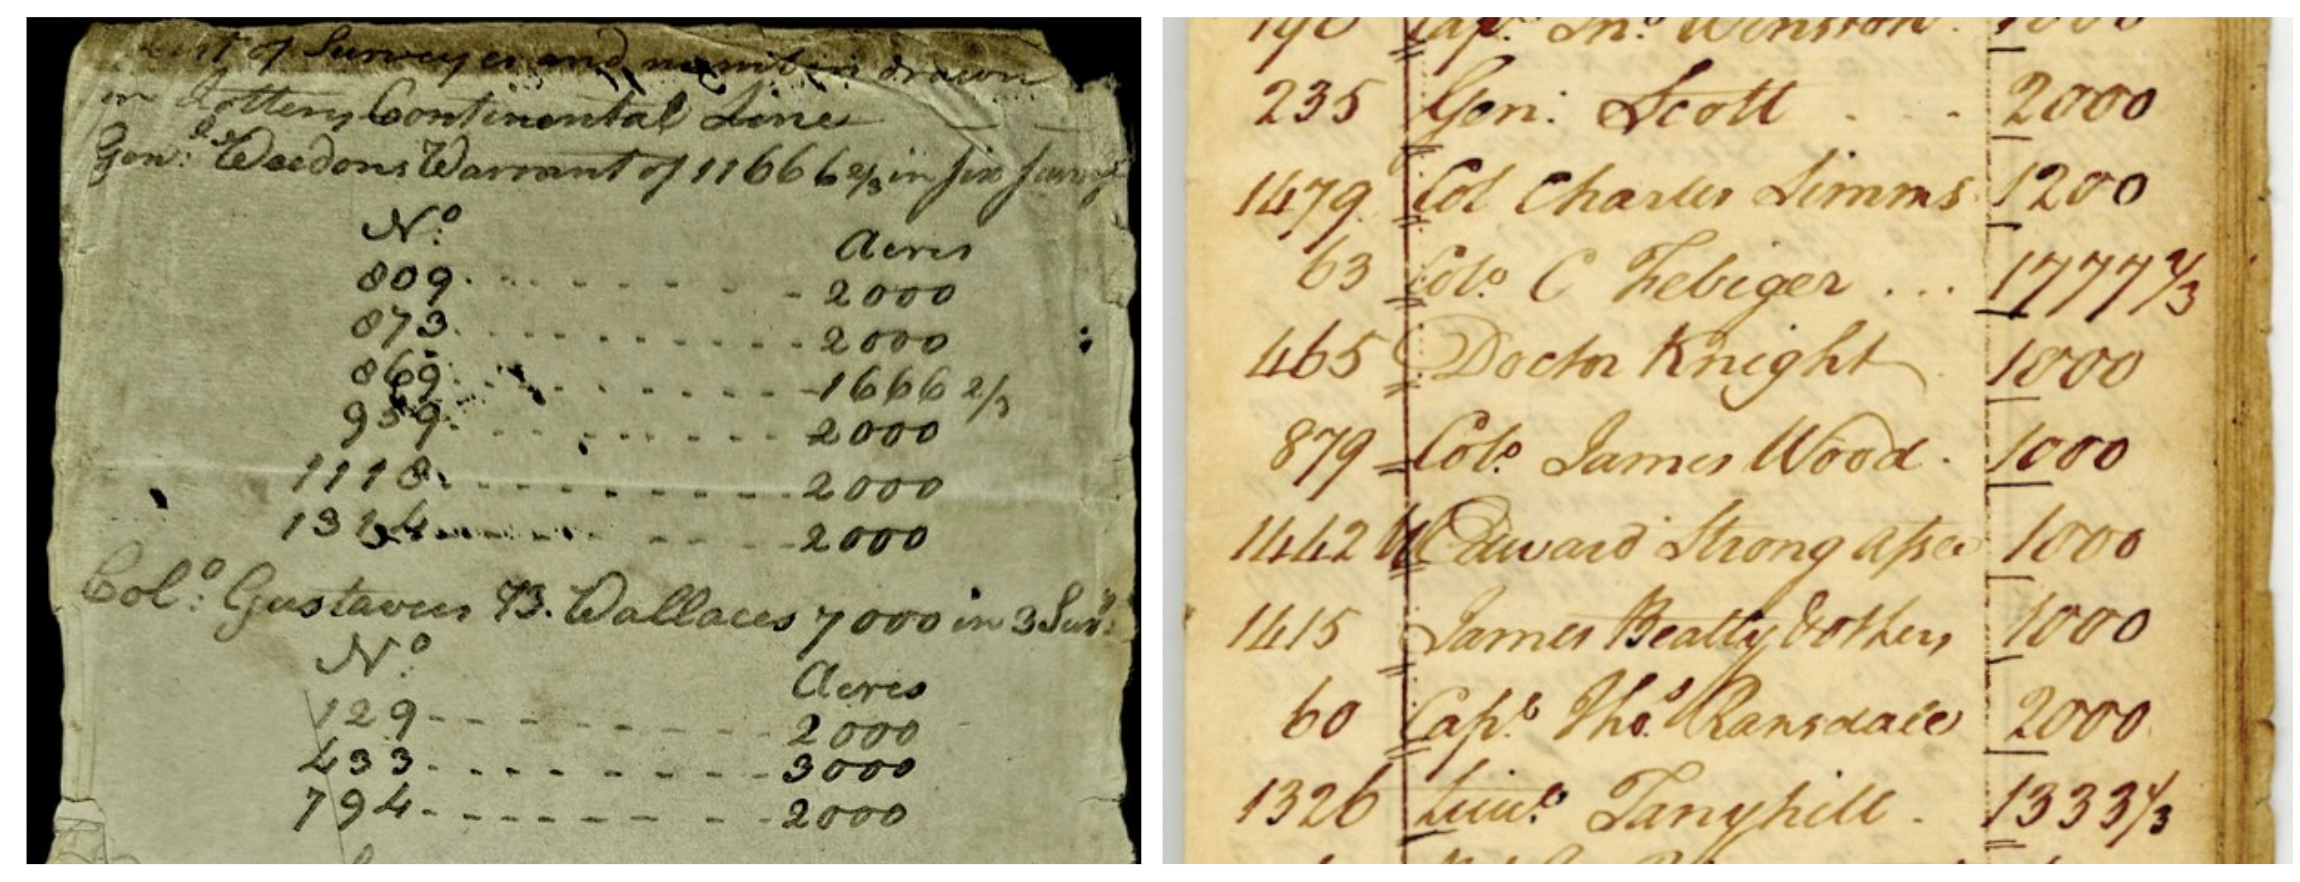 List of Surveyes and number drawn
in Lottery Continental Line
Gen:l Weedons Warrant of 11666 2/3 in six Surveys
No.
Acres
809 2000
873 2000
869 1666 2/3
959 2000
1118 2000
1314 2000
Colo: Gustavus B. Wallaces 7000 in 3 Surs:
No.
Acres
129 2000
433 3000
794 2000
190 Capt. Jno. Winston. 1000
235 Gen: Scott 2000
1479 Col Charles Simms 1200
63 Colo. C Febiger ... 1777 2/3
465 Doctor Knight 1000
879 Colo. James Wood. 1000
1442 Edward Strong Assee 1000
1415 James Beatty & others 1000
60 Capt. Thos. Ransdale 2000
1326 Lieut. Tanyhill. 1333 1/3